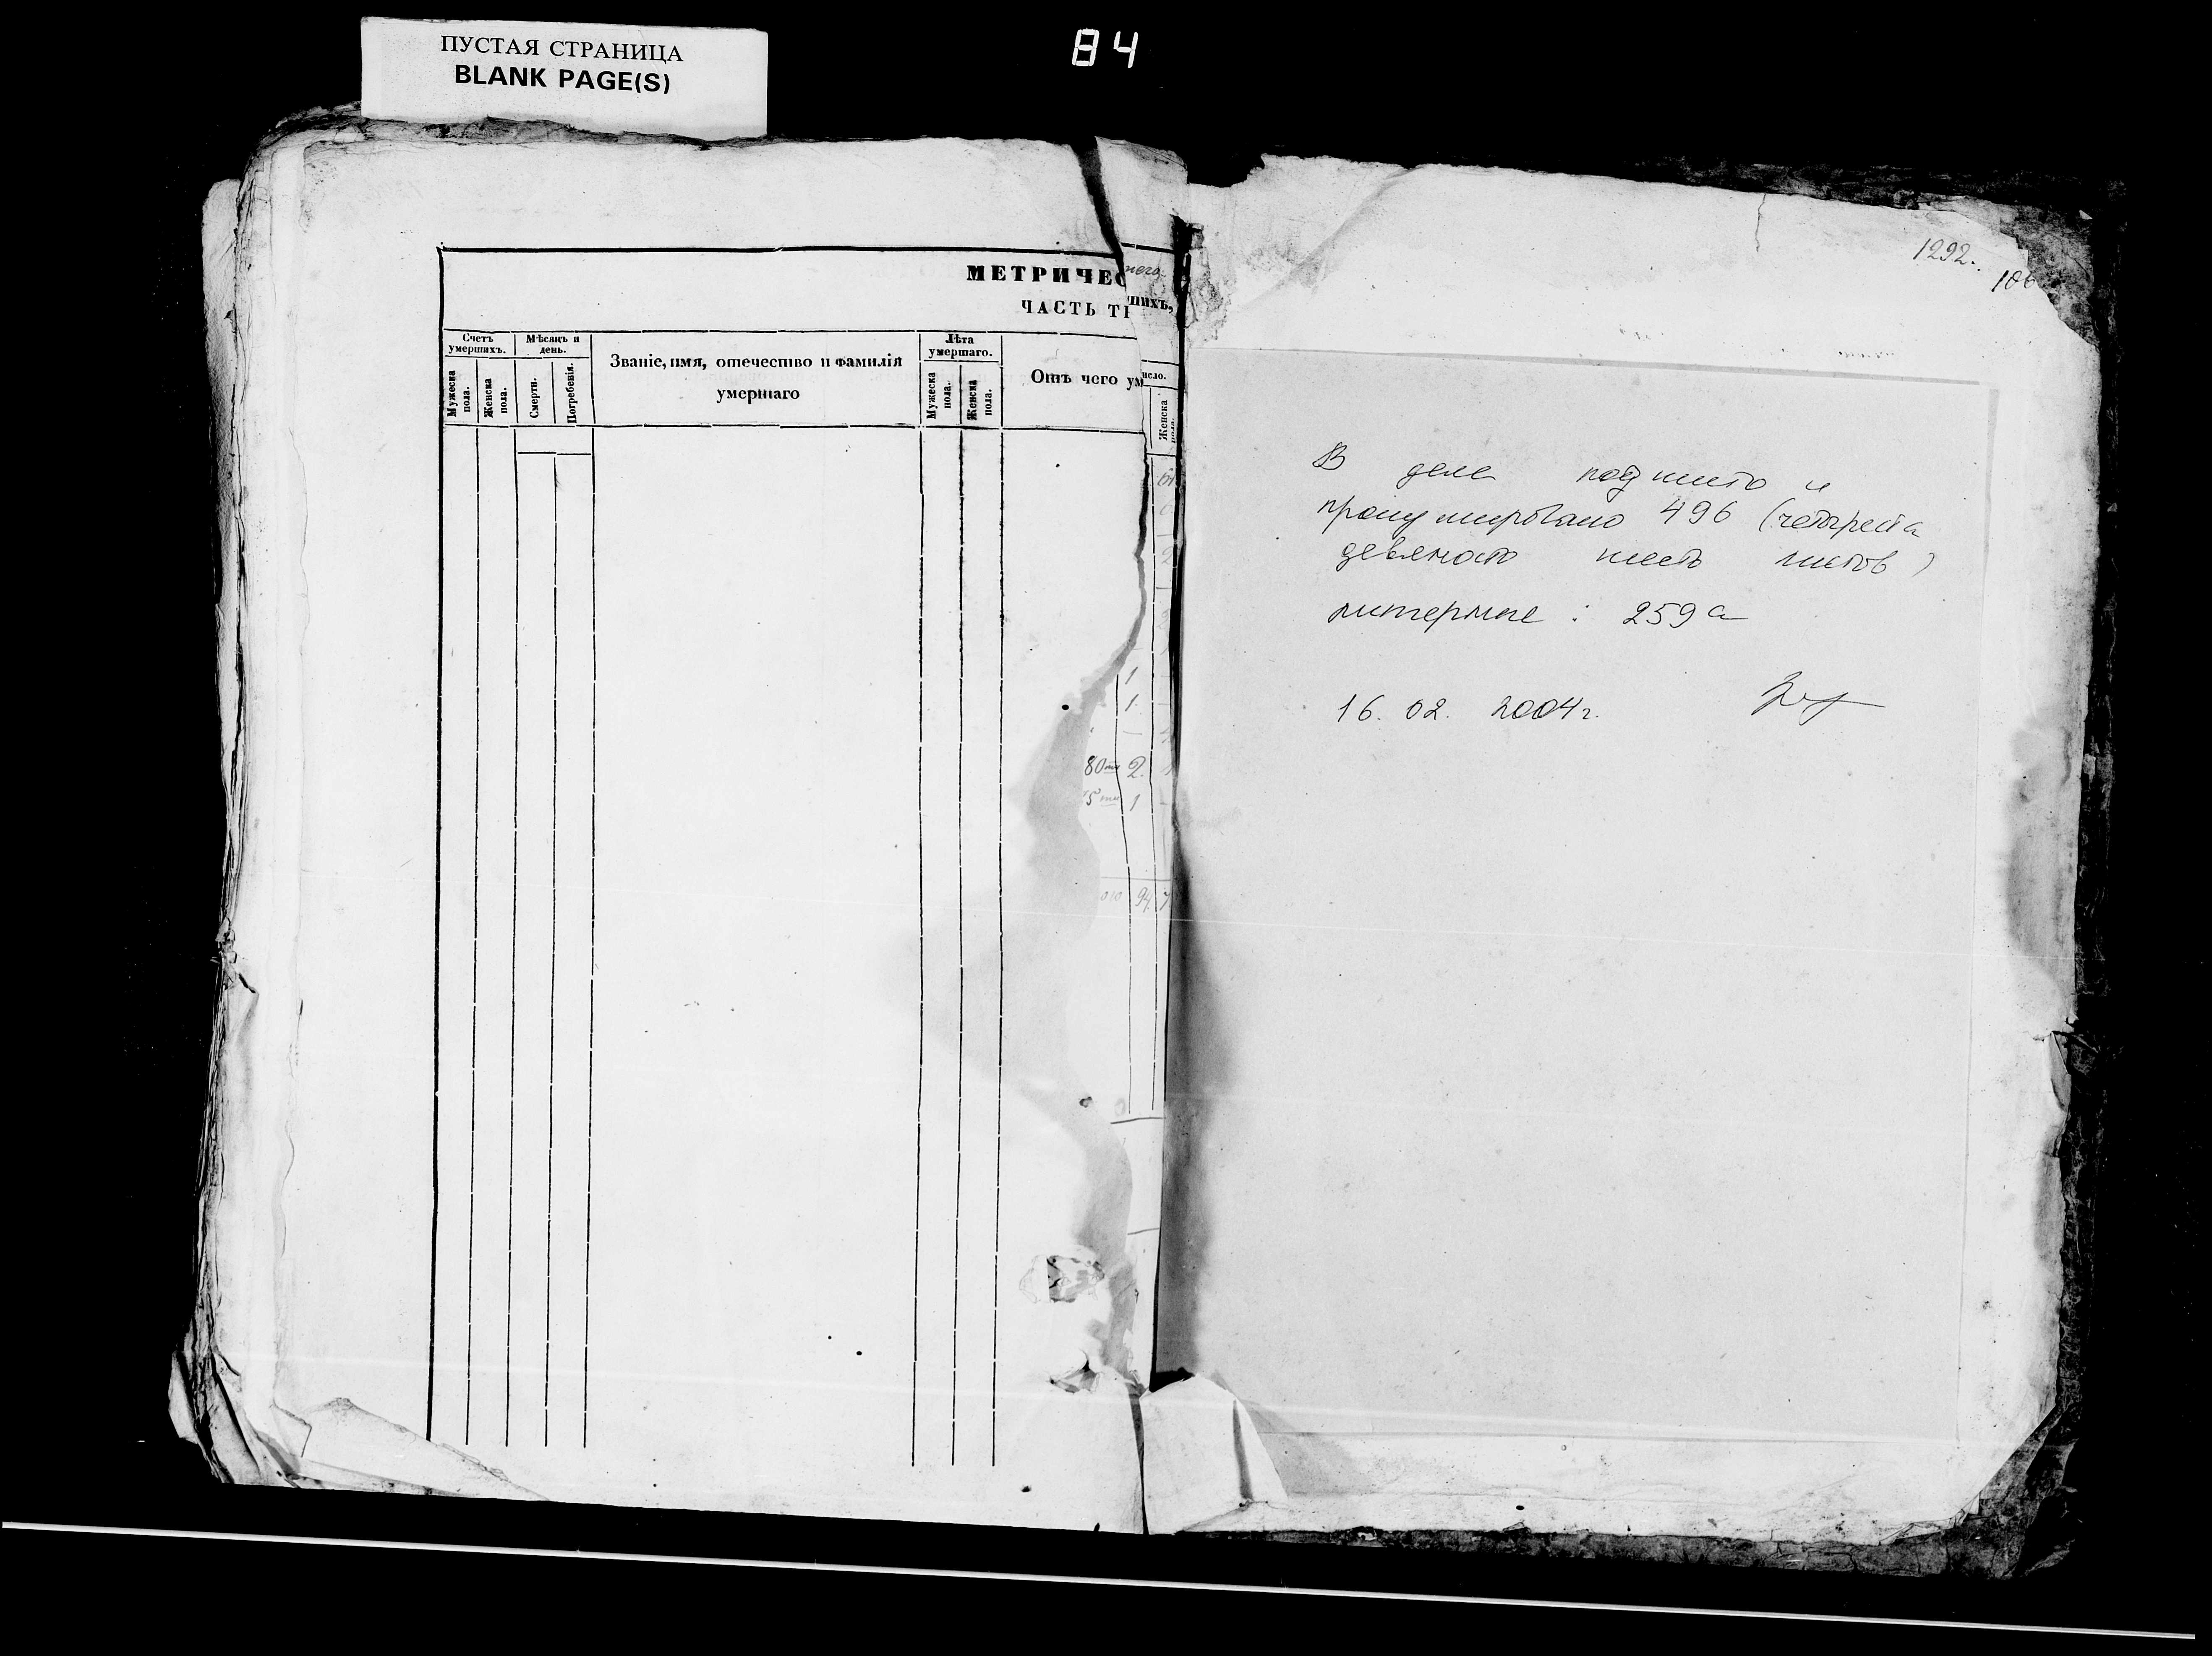 ПУСТАЯ СТРАНИЦА
BLANK PAGE(S)
84
МЕТРИЧЕС
ЧАСТЬ ТР
Счетъ умершихъ.
Мужеска пола.
Женска пола.
Мѣсяцъ и день.
Смерти.
Погребенія.
Званіе, имя, отечество и фамилія
умершаго
Лѣта умершаго.
Мужеска пола.
Женска пола.
Отъ чего ум
него
шихъ,
исло.
Женска пола.
1
1.
80ти 2.
5ти 1
94
1292.
106
В деле подшито и
пронумеровано 496 (четыреста
девяносто шесть листов)
литерные: 259а
16. 02. 2004г.